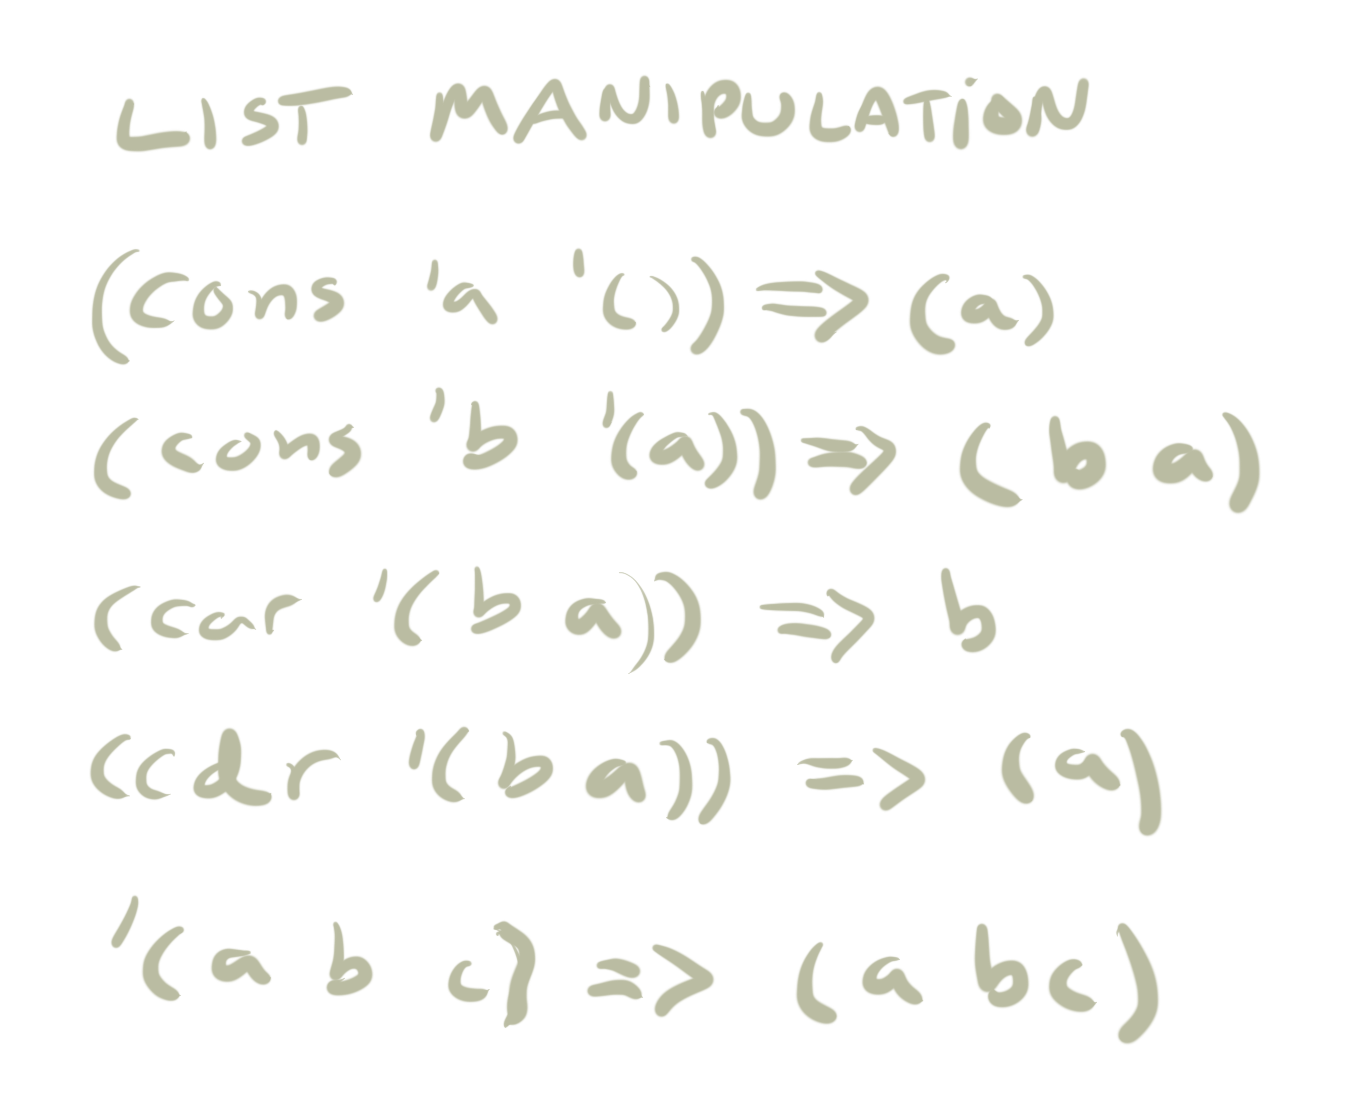 LIST MANIPULATION
(cons 'a '()) => (a)
(cons 'b '(a)) => (b a)
(car '(b a)) => b
(cdr '(b a)) => (a)
'(a b c) => (a b c)